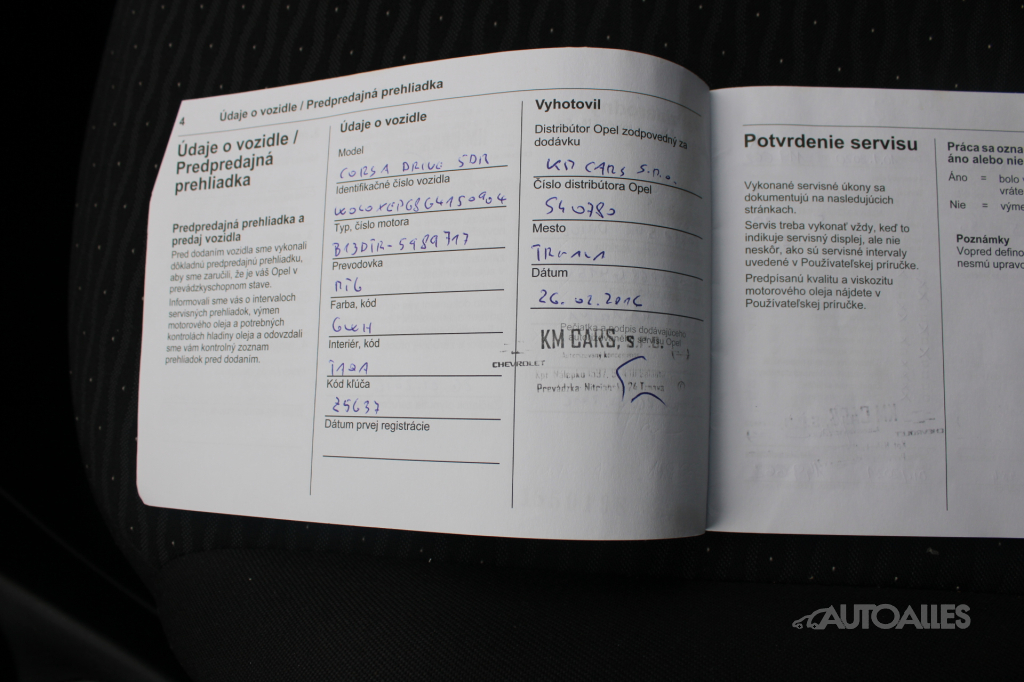 4 Údaje o vozidle / Predpredajná prehliadka
Údaje o vozidle /
Predpredajná
prehliadka
Predpredajná prehliadka a
predaj vozidla
Pred dodaním vozidla sme vykonali
dôkladnú predpredajnú prehliadku,
aby sme zaručili, že je váš Opel v
prevádzkyschopnom stave.
Informovali sme vás o intervaloch
servisných prehliadok, výmen
motorového oleja a potrebných
kontrolách hladiny oleja a odovzdali
sme vám kontrolný zoznam
prehliadok pred dodaním.
Údaje o vozidle
Model
CORSA DRIVE 5DR
Identifikačné číslo vozidla
Typ, číslo motora
B13DTR-5989717
Prevodovka
M6
Farba, kód
GWH
Interiér, kód
Kód kľúča
Z5637
Dátum prvej registrácie
Vyhotovil
Distribútor Opel zodpovedný za
dodávku
KM CARS s.r.o.
Číslo distribútora Opel
540780
Mesto
TRNAVA
Dátum
26.02.2016
Pečiatka a podpis dodávajúceho
KM CARS, s. r. o.
CHEVROLET
Prevádzka
Potvrdenie servisu
Vykonané servisné úkony sa
dokumentujú na nasledujúcich
stránkach.
Servis treba vykonať vždy, keď to
indikuje servisný displej, ale nie
neskôr, ako sú servisné intervaly
uvedené v Používateľskej príručke.
Predpísanú kvalitu a viskozitu
motorového oleja nájdete v
Používateľskej príručke.
Práca sa ozna
áno alebo nie
Áno = bolo v
vráte
Nie = výme
Poznámky
Vopred defino
nesmú upravo
AUTOALLES